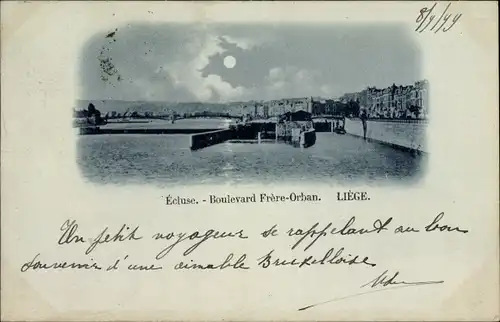 8/9/99
Écluse. - Boulevard Frère-Orban. LIÉGE.
Un petit voyageur se rappelant au bon
souvenir d'une aimable Bruxelloise